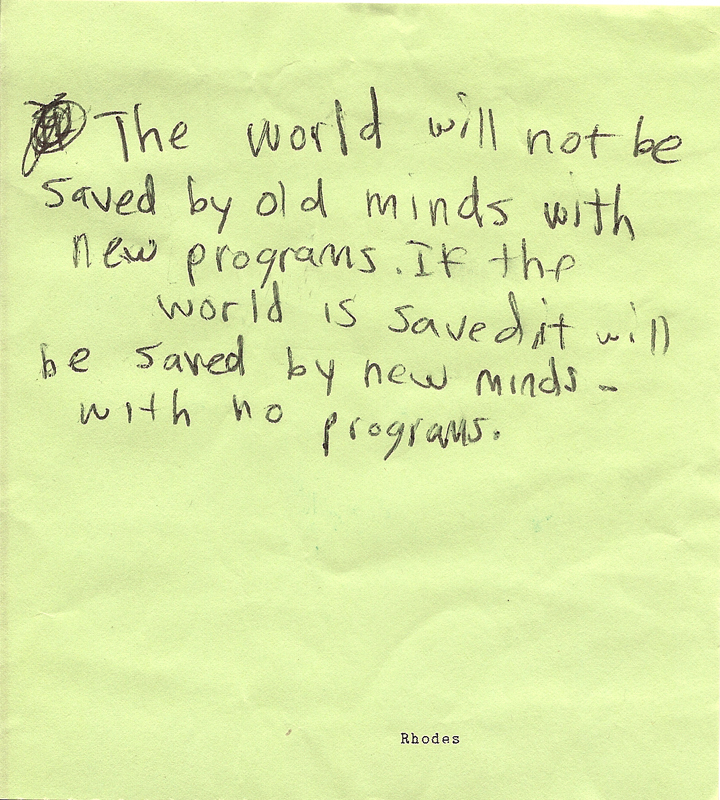 The world will not be
saved by old minds with
new programs. If the
world is saved it will
be saved by new minds -
with no programs.
Rhodes